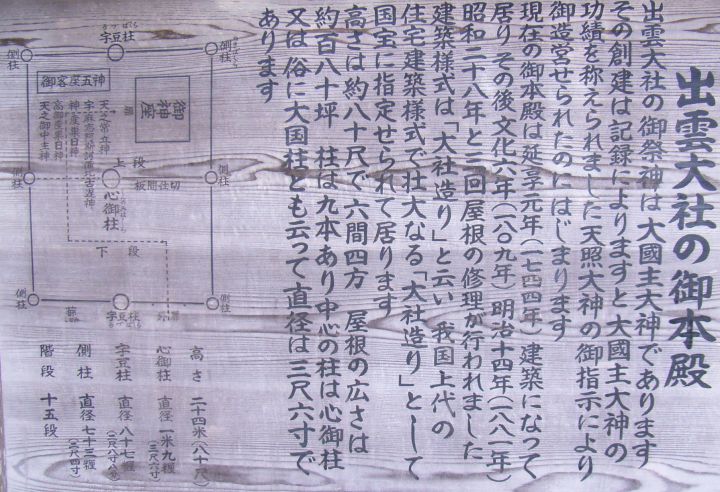 出雲大社の御本殿
出雲大社の御祭神は大國主大神であります
その創建は記録によりますと大國主大神の
功績を称えられました天照大神の御指示により
御造営せられたのにはじまります
現在の御本殿は延享元年(一七四四年)建築になって
居り その後文化六年(一八〇九年)明治十四年(一八八一年)
昭和二十八年と三回屋根の修理が行われました
建築様式は「大社造り」と云い 我国上代の
住宅建築様式で壮大なる「大社造り」として
国宝に指定せられて居ります
高さは約八十尺で六間四方 屋根の広さは
約百八十坪 柱は九本あり中心の柱は心御柱
又は俗に大国柱とも云って直径は三尺六寸で
あります
側柱
宇豆柱
側柱
御客座五神
御神座
天之常立神
宇麻志阿斯訶備比古遅神
神産巣日神
高御産巣日神
天之御中主神
上段
側柱
心御柱
仕切間板
側柱
下段
側柱
宇豆柱
側柱
高さ 二十四米(八十尺)
心御柱 直径 一米九糎
(三尺六寸)
宇豆柱 直径 八十七糎
側柱 直径 七十三糎
(二尺四寸)
階段 十五段